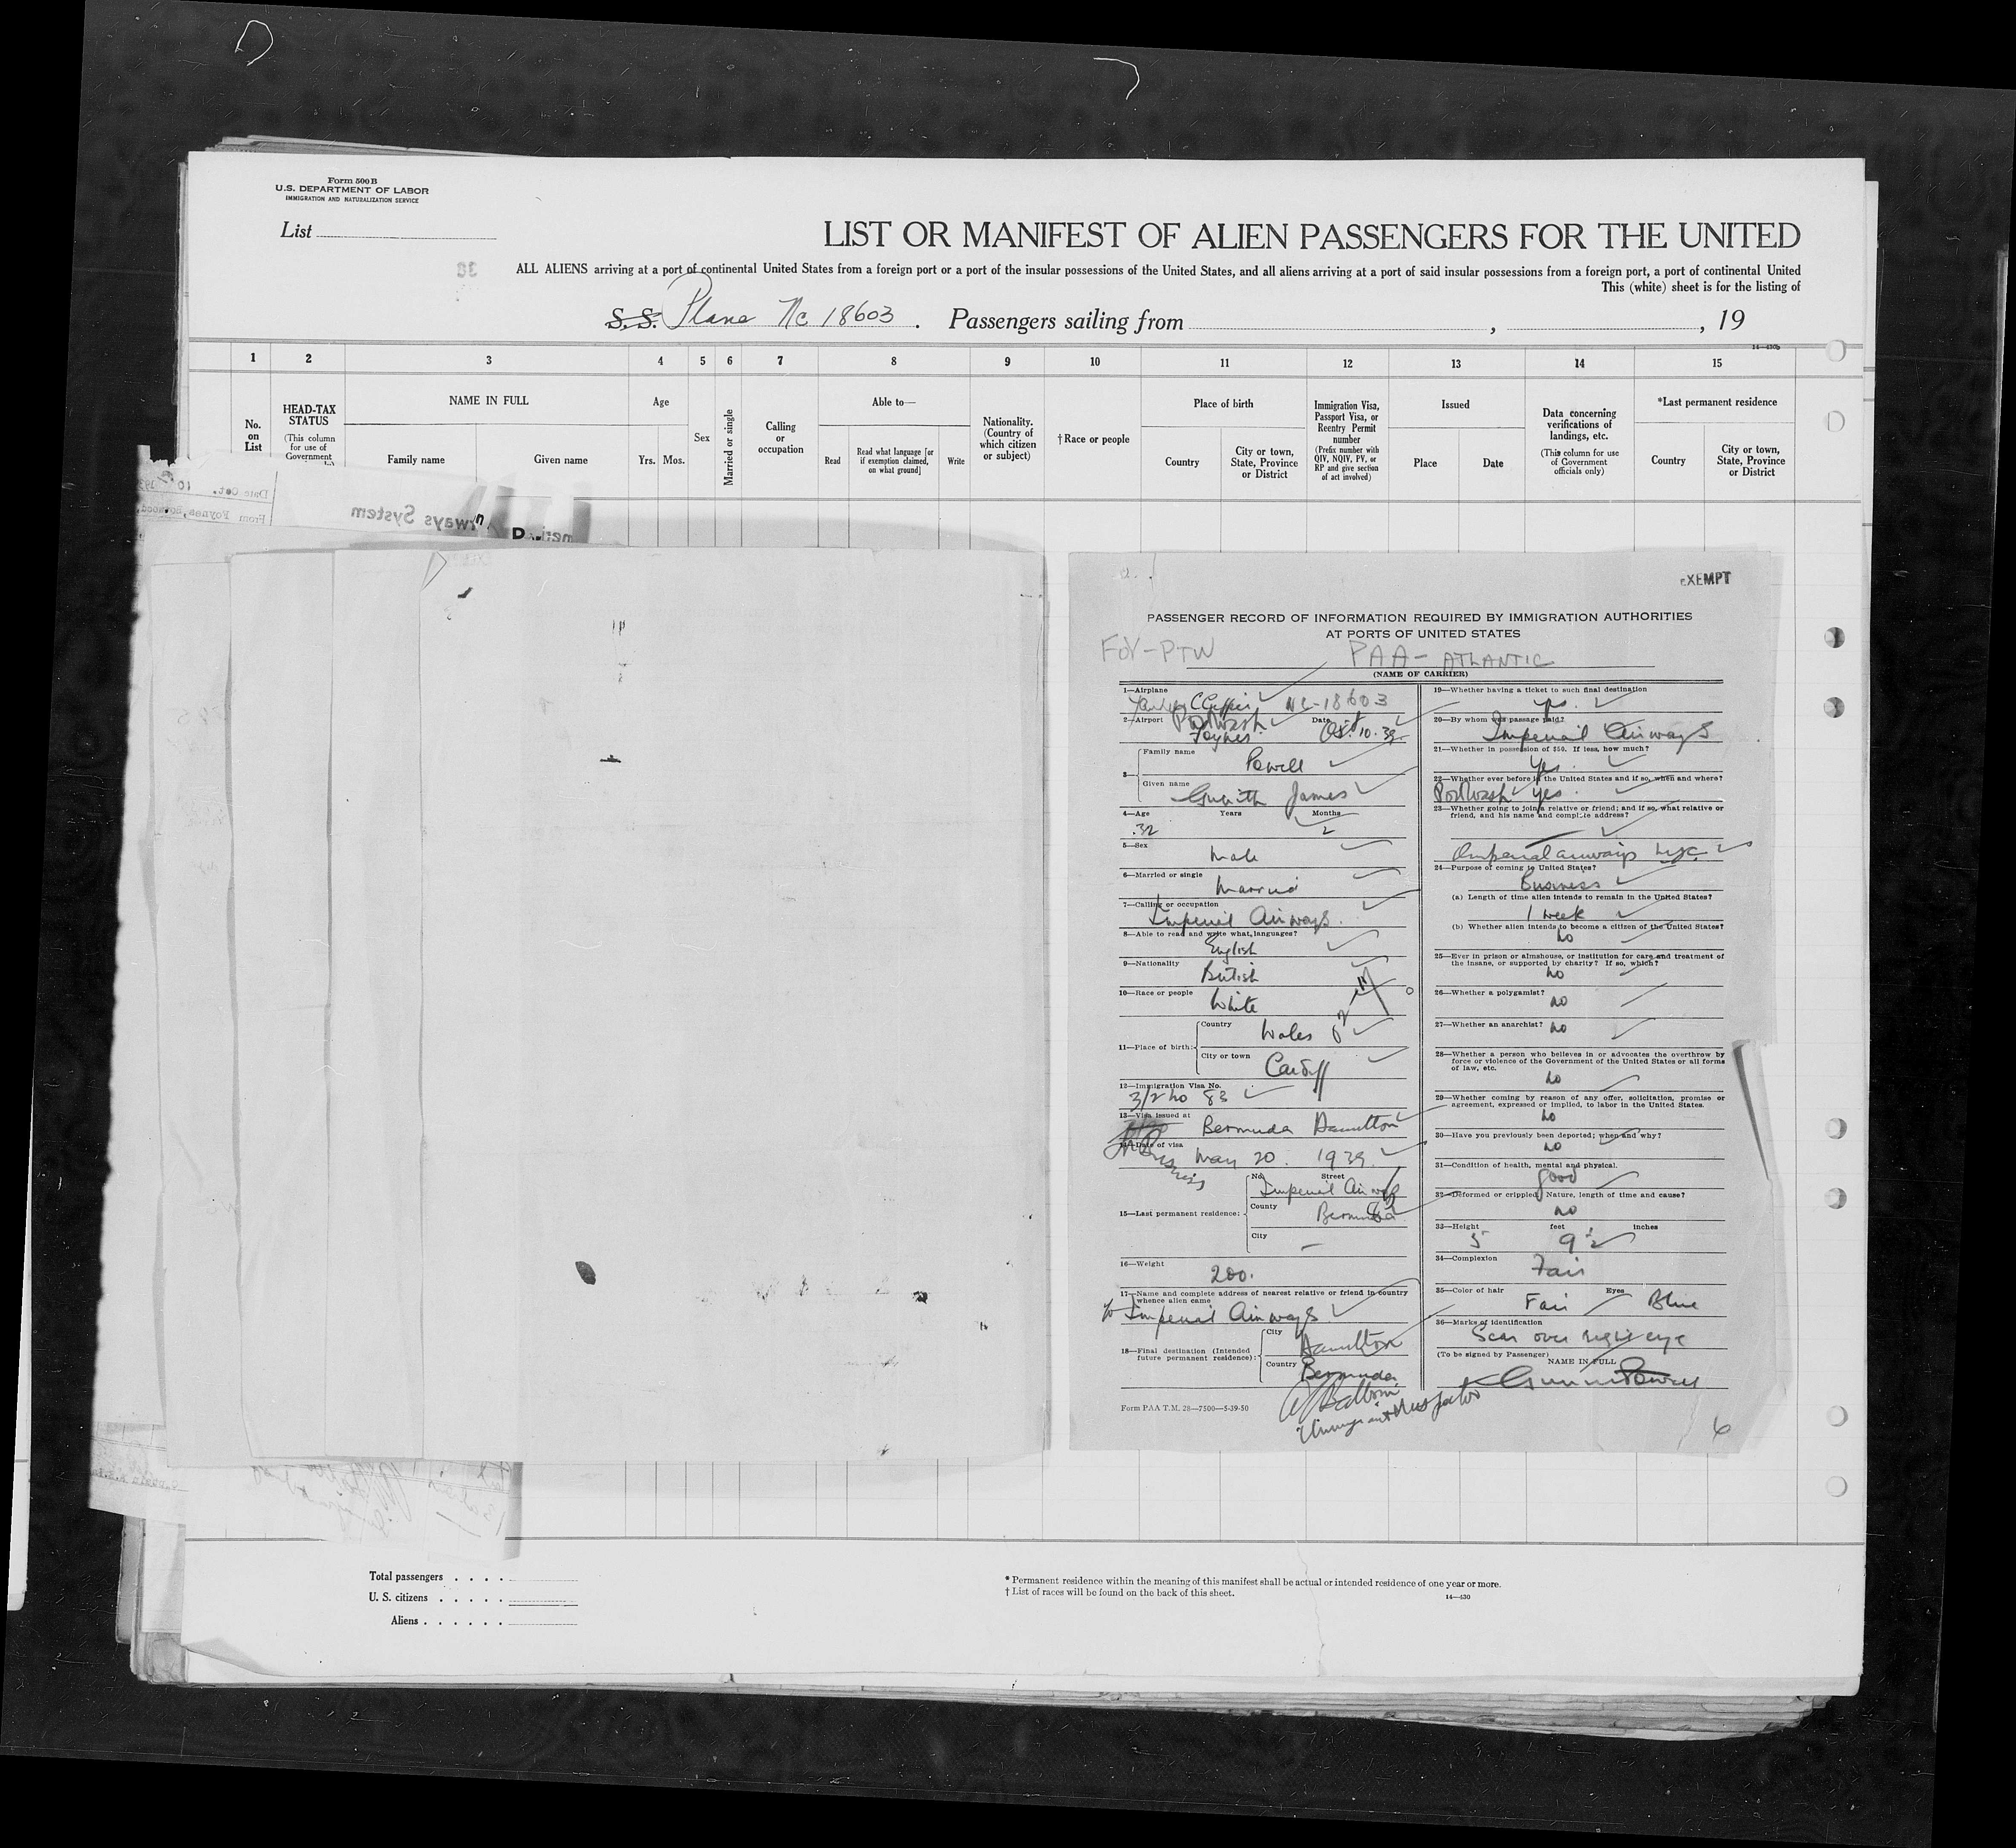 Form 500 B
U.S. DEPARTMENT OF LABOR
IMMIGRATION AND NATURALIZATION SERVICE
List
LIST OR MANIFEST OF ALIEN PASSENGERS FOR THE UNITED
ALL ALIENS arriving at a port of continental United States from a foreign port or a port of the insular possessions of the United States, and all aliens arriving at a port of said insular possessions from a foreign port, a port of continental United
This (white) sheet is for the listing of
S.S. Plane Nc 18603. Passengers sailing from , , 19
14—430b
1 2 3 4 5 6 7 8 9 10 11 12 13 14 15
No. on List
HEAD-TAX STATUS
(This column for use of Government
NAME IN FULL
Family name
Given name
Age
Yrs. Mos.
Sex
Married or single
Calling or occupation
Able to—
Read
Read what language [or if exemption claimed, on what ground]
Write
Nationality. (Country of which citizen or subject)
†Race or people
Place of birth
Country
City or town, State, Province or District
Immigration Visa, Passport Visa, or Reentry Permit number
(Prefix number with QIV, NQIV, PV, or RP and give section of act involved)
Issued
Place
Date
Data concerning verifications of landings, etc.
(This column for use of Government officials only)
*Last permanent residence
Country
City or town, State, Province or District
Date Oct. 10
From Foynes,
rways System
EXEMPT
PASSENGER RECORD OF INFORMATION REQUIRED BY IMMIGRATION AUTHORITIES
AT PORTS OF UNITED STATES
FOY-PTW PAA- ATLANTIC
(NAME OF CARRIER)
1—Airplane
Yankee Clipper NC-18603
2—Airport Port Wash Date
Foynes. Oct. 10. 39.
3—
Family name
Powell
Given name
James
4—Age Years Months
32 2
5—Sex
Male
6—Married or single
Married
7—Calling or occupation
Imperial Airways.
8—Able to read and write what languages?
English
9—Nationality
British
10—Race or people
White
11—Place of birth:
Country
Wales
City or town
Cardiff
12—Immigration Visa No.
3/2 No 83
13—Visa issued at
Bermuda Hamilton
14—Date of visa
May 20. 1939.
15—Last permanent residence:
No. Street
Imperial Airways
County
Bermuda
City
—
16—Weight
200.
17—Name and complete address of nearest relative or friend in country
whence alien came
Imperial Airways
18—Final destination (Intended
future permanent residence):
City
Hamilton
Country
Bermuda
Immigrant Inspector
Form PAA T.M. 28—7500—5-39-50
19—Whether having a ticket to such final destination
yes.
20—By whom was passage paid?
Imperial Airways
21—Whether in possession of $50. If less, how much?
Yes.
22—Whether ever before in the United States and if so, when and where?
Port Wash yes.
23—Whether going to join a relative or friend; and if so, what relative or
friend, and his name and complete address?
Imperial airways NYC
24—Purpose of coming to United States?
Business
(a) Length of time alien intends to remain in the United States?
1 week
(b) Whether alien intends to become a citizen of the United States?
No
25—Ever in prison or almshouse, or institution for care and treatment of
the insane, or supported by charity? If so, which?
No
26—Whether a polygamist?
no
27—Whether an anarchist? no
28—Whether a person who believes in or advocates the overthrow by
force or violence of the Government of the United States or all forms
of law, etc.
no
29—Whether coming by reason of any offer, solicitation, promise or
agreement, expressed or implied, to labor in the United States.
no
30—Have you previously been deported; when and why?
no
31—Condition of health, mental and physical.
good
32—Deformed or crippled. Nature, length of time and cause?
no
33—Height feet inches
5 9½
34—Complexion
Fair
35—Color of hair Eyes
Fair Blue
36—Marks of identification
Scar over right eye
(To be signed by Passenger)
NAME IN FULL
Powell
6
Total passengers . . . .
U. S. citizens . . . . .
Aliens . . . . . .
* Permanent residence within the meaning of this manifest shall be actual or intended residence of one year or more.
† List of races will be found on the back of this sheet.
14—430